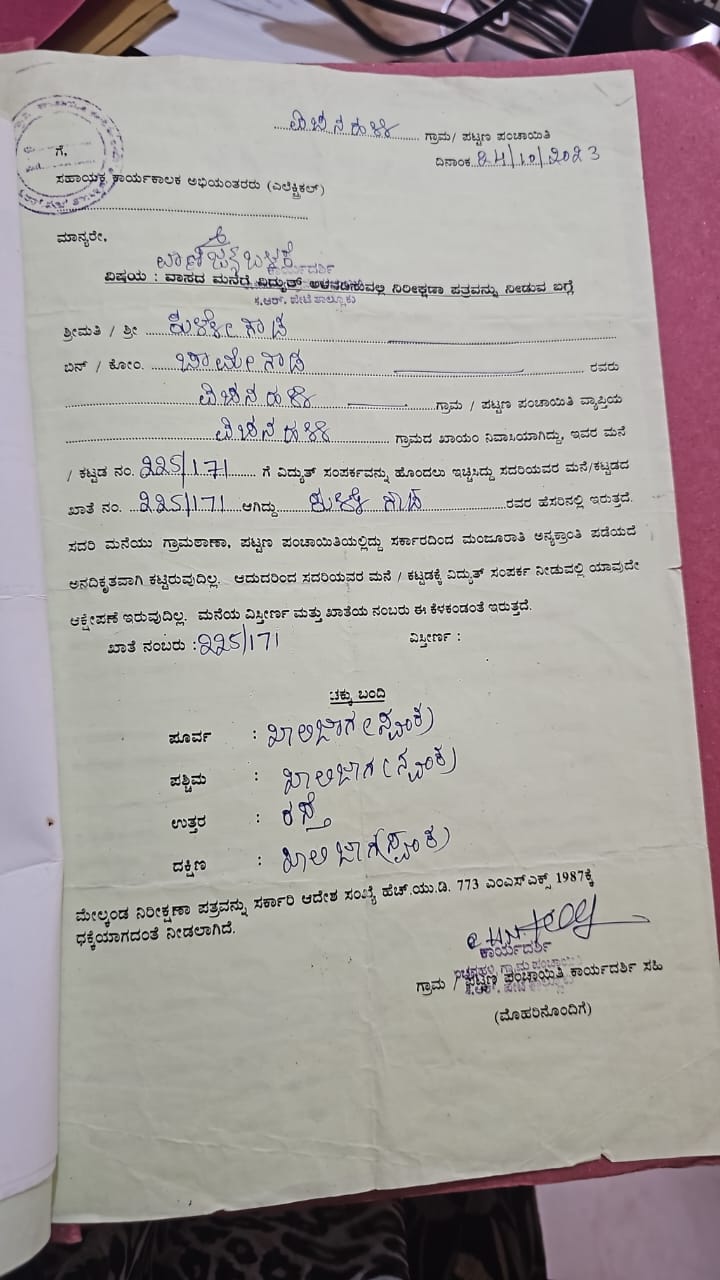 ವಿಚಿನಹಳ್ಳಿ ಗ್ರಾಮ/ ಪಟ್ಟಣ ಪಂಚಾಯಿತಿ
ದಿನಾಂಕ 24/10/2023
ಗೆ,
ಸಹಾಯಕ ಕಾರ್ಯಕಾಲಕ ಅಭಿಯಂತರರು (ಎಲೆಕ್ಟ್ರಿಕಲ್)
ಮಾನ್ಯರೇ,
ವಾಣಿಜ್ಯ ಬಳಕೆ
ಕಾರ್ಯದರ್ಶಿ
ವಿಷಯ : ವಾಸದ ಮನೆಗೆ ವಿದ್ಯುತ್ ಅಳವಡಿಸುವಲ್ಲಿ ನಿರೀಕ್ಷಣಾ ಪತ್ರವನ್ನು ನೀಡುವ ಬಗ್ಗೆ
ಕೆ.ಆರ್. ಪೇಟೆ ತಾಲ್ಲೂಕು
ಶ್ರೀಮತಿ / ಶ್ರೀ ಕುಳ್ಳೇಗೌಡ
ಬಿನ್ / ಕೋಂ. ಚಾಮೇಗೌಡ ರವರು
ವಿಚಿನಹಳ್ಳಿ ಗ್ರಾಮ / ಪಟ್ಟಣ ಪಂಚಾಯಿತಿ ವ್ಯಾಪ್ತಿಯ
ವಿಚಿನಹಳ್ಳಿ ಗ್ರಾಮದ ಖಾಯಂ ನಿವಾಸಿಯಾಗಿದ್ದು, ಇವರ ಮನೆ
/ ಕಟ್ಟಡ ನಂ. 225/171 ಗೆ ವಿದ್ಯುತ್ ಸಂಪರ್ಕವನ್ನು ಹೊಂದಲು ಇಚ್ಚಿಸಿದ್ದು ಸದರಿಯವರ ಮನೆ/ಕಟ್ಟಡದ
ಖಾತೆ ನಂ. 225/171 ಆಗಿದ್ದು ಕುಳ್ಳೇಗೌಡ ರವರ ಹೆಸರಿನಲ್ಲಿ ಇರುತ್ತದೆ.
ಸದರಿ ಮನೆಯು ಗ್ರಾಮಠಾಣಾ, ಪಟ್ಟಣ ಪಂಚಾಯಿತಿಯಲ್ಲಿದ್ದು ಸರ್ಕಾರದಿಂದ ಮಂಜೂರಾತಿ ಅನ್ಯಕ್ರಾಂತಿ ಪಡೆಯದೆ
ಅನದಿಕೃತವಾಗಿ ಕಟ್ಟಿರುವುದಿಲ್ಲ. ಆದುದರಿಂದ ಸದರಿಯವರ ಮನೆ / ಕಟ್ಟಡಕ್ಕೆ ವಿದ್ಯುತ್ ಸಂಪರ್ಕ ನೀಡುವಲ್ಲಿ ಯಾವುದೇ
ಆಕ್ಷೇಪಣೆ ಇರುವುದಿಲ್ಲ. ಮನೆಯ ವಿಸ್ತೀರ್ಣ ಮತ್ತು ಖಾತೆಯ ನಂಬರು ಈ ಕೆಳಕಂಡಂತೆ ಇರುತ್ತದೆ.
ಖಾತೆ ನಂಬರು : 225/171 ವಿಸ್ತೀರ್ಣ :
ಚಕ್ಕು ಬಂದಿ
ಪೂರ್ವ : ಖಾಲಿಜಾಗ (ಸ್ವಂತ)
ಪಶ್ಚಿಮ : ಖಾಲಿಜಾಗ (ಸ್ವಂತ)
ಉತ್ತರ : ರಸ್ತೆ
ದಕ್ಷಿಣ : ಖಾಲಿಜಾಗ (ಸ್ವಂತ)
ಮೇಲ್ಕಂಡ ನಿರೀಕ್ಷಣಾ ಪತ್ರವನ್ನು ಸರ್ಕಾರಿ ಆದೇಶ ಸಂಖ್ಯೆ ಹೆಚ್.ಯು.ಡಿ. 773 ಎಂಎಸ್ಎಕ್ಸ್ 1987ಕ್ಕೆ
ಧಕ್ಕೆಯಾಗದಂತೆ ನೀಡಲಾಗಿದೆ.
ಕಾರ್ಯದರ್ಶಿ
ಗ್ರಾಮ / ಪಟ್ಟಣ ಪಂಚಾಯಿತಿ ಕಾರ್ಯದರ್ಶಿ ಸಹಿ
ಕೆ.ಆರ್. ಪೇಟೆ ತಾಲ್ಲೂಕು
(ಮೊಹರಿನೊಂದಿಗೆ)